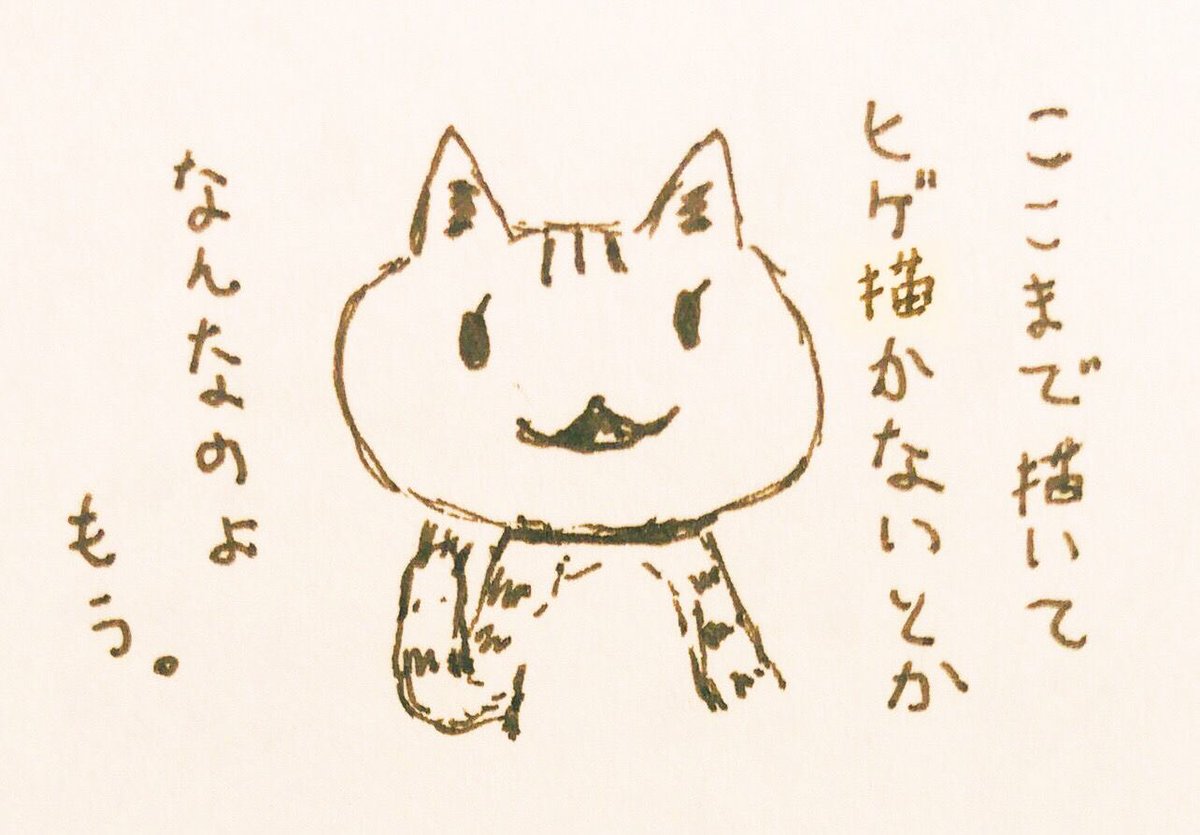 ここまで描いて
ヒゲ描かないとか
なんなのよ
もう。